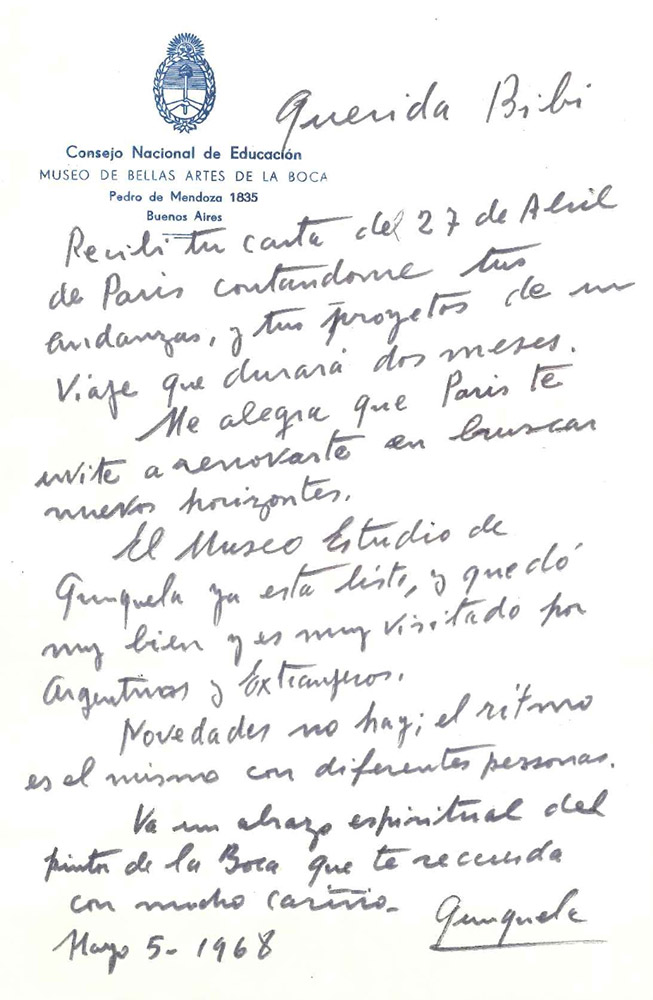 Consejo Nacional de Educación
MUSEO DE BELLAS ARTES DE LA BOCA
Pedro de Mendoza 1835
Buenos Aires
Querida Bibi
Recibi tu carta del 27 de Abril
de Paris contandome tus
andanzas, y tus proyetos de un
Viaje que durará dos meses.
Me alegra que Paris te
invite a renovarte en buscar
nuevos horizontes.
El Museo Estudio de
Quinquela ya esta listo, y quedó
muy bien y es muy visitado por
Argentinos y Extranjeros.
Novedades no hay; el ritmo
es el mismo con diferentes personas.
Va un abrazo espiritual del
pintor de la Boca que te recuerda
con mucho cariño-
Quinquela
Mayo 5- 1968